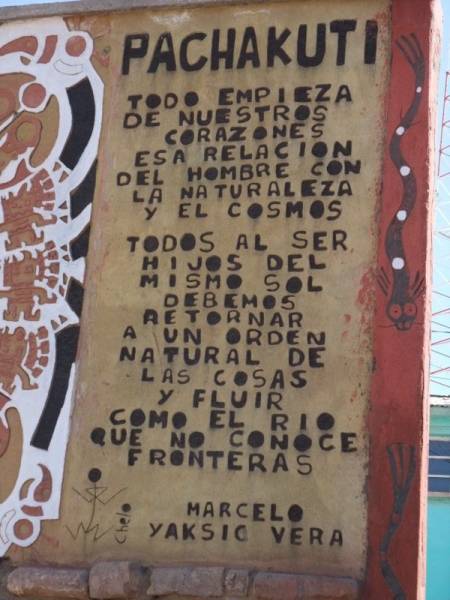 PACHAKUTI
TODO EMPIEZA
DE NUESTROS
CORAZONES
ESA RELACION
DEL HOMBRE CON
LA NATURALEZA
Y EL COSMOS
TODOS AL SER
HIJOS DEL
MISMO SOL
DEBEMOS
RETORNAR
A UN ORDEN
NATURAL DE
LAS COSAS
Y FLUIR
COMO EL RIO
QUE NO CONOCE
FRONTERAS
Chelo
MARCELO
YAKSIC VERA